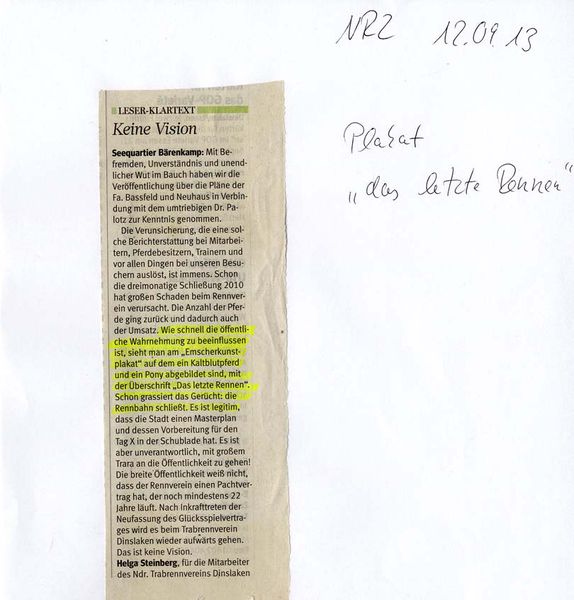 NRZ 12.09.13
Plakat
„das letzte Rennen“
LESER-KLARTEXT
Keine Vision
Seequartier Bärenkamp: Mit Be-
fremden, Unverständnis und unend-
licher Wut im Bauch haben wir die
Veröffentlichung über die Pläne der
Fa. Bassfeld und Neuhaus in Verbin-
dung mit dem umtriebigen Dr. Pa-
lotz zur Kenntnis genommen.
Die Verunsicherung, die eine sol-
che Berichterstattung bei Mitarbei-
tern, Pferdebesitzern, Trainern und
vor allen Dingen bei unseren Besu-
chern auslöst, ist immens. Schon
die dreimonatige Schließung 2010
hat großen Schaden beim Rennver-
ein verursacht. Die Anzahl der Pfer-
de ging zurück und dadurch auch
der Umsatz. Wie schnell die öffentli-
che Wahrnehmung zu beeinflussen
ist, sieht man am „Emscherkunst-
plakat“ auf dem ein Kaltblutpferd
und ein Pony abgebildet sind, mit
der Überschrift „Das letzte Rennen“.
Schon grassiert das Gerücht: die
Rennbahn schließt. Es ist legitim,
dass die Stadt einen Masterplan
und dessen Vorbereitung für den
Tag X in der Schublade hat. Es ist
aber unverantwortlich, mit großem
Trara an die Öffentlichkeit zu gehen!
Die breite Öffentlichkeit weiß nicht,
dass der Rennverein einen Pachtver-
trag hat, der noch mindestens 22
Jahre läuft. Nach Inkrafttreten der
Neufassung des Glücksspielvertra-
ges wird es beim Trabrennverein
Dinslaken wieder aufwärts gehen.
Das ist keine Vision.
Helga Steinberg, für die Mitarbeiter
des Ndr. Trabrennvereins Dinslaken